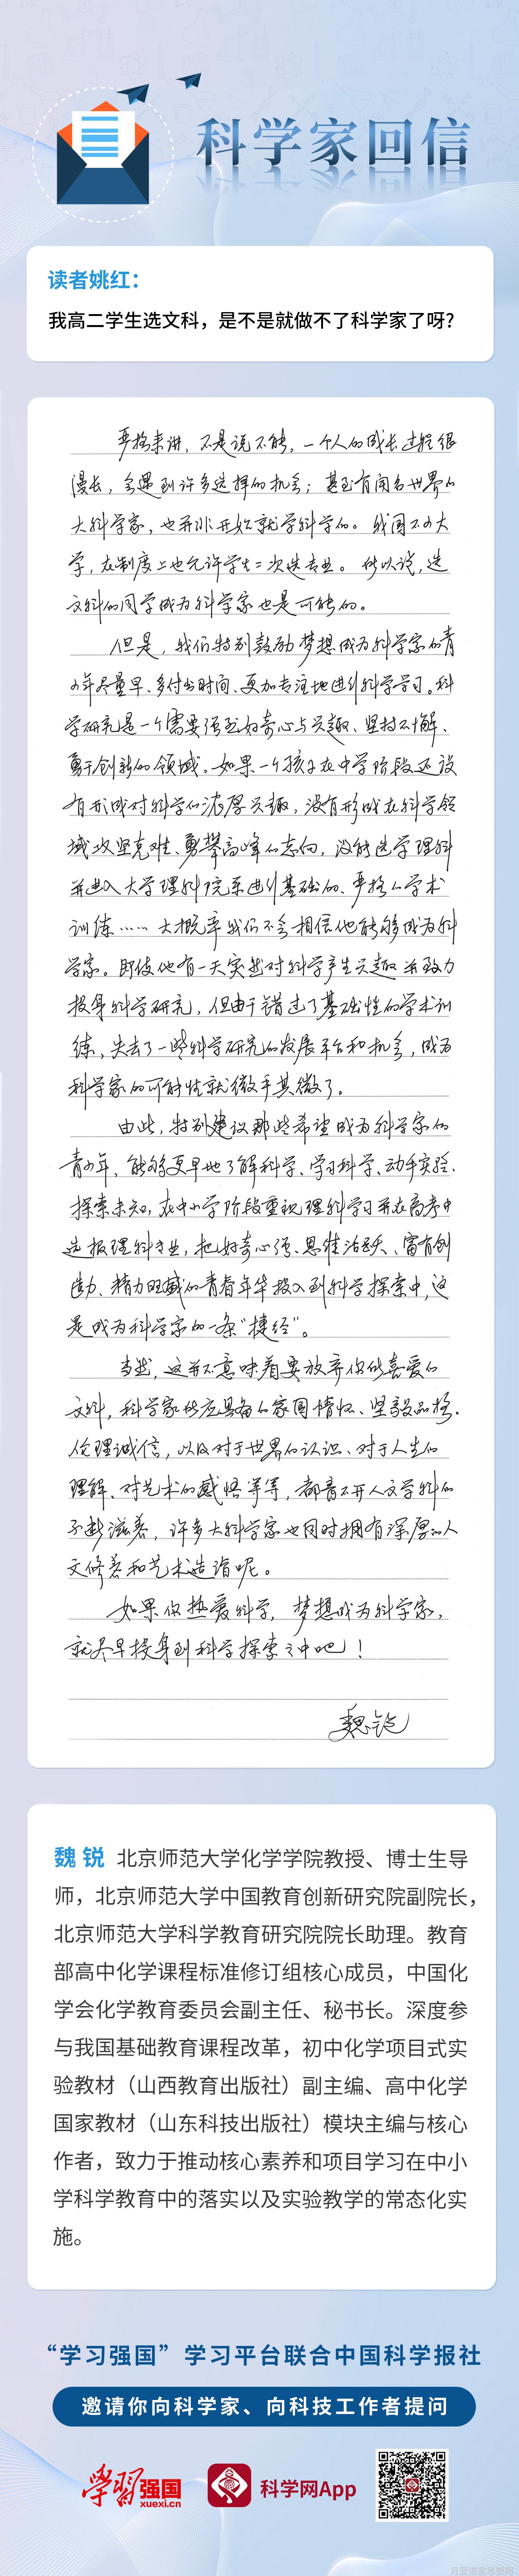 科学家回信
读者姚红：
我高二学生选文科，是不是就做不了科学家了呀?
严格来讲，不是说不能，一个人的成长过程很
漫长，会遇到许多选择的机会；甚至有闻名世界的
大科学家，也并非开始就学科学的。我国不少大
学，在制度上也允许学生二次选专业。所以说，选
文科的同学成为科学家也是可能的。
但是，我们特别鼓励梦想成为科学家的青
少年尽量早、多付出时间、更加专注地进行科学学习。科
学研究是一个需要强烈好奇心与兴趣、坚持不懈、
勇于创新的领域。如果一个孩子在中学阶段还没
有形成对科学的浓厚兴趣，没有形成在科学领
域攻坚克难、勇攀高峰的志向，没能选学理科
并进入大学理科院系进行基础的、严格的学术
训练……大概率我们不会相信他能够成为科
学家。即使他有一天突然对科学产生兴趣并致力
投身科学研究，但由于错过了基础性的学术训
练，失去了一些科学研究的发展平台和机会，成为
科学家的可能性就微乎其微了。
由此，特别建议那些希望成为科学家的
青少年，能够更早地了解科学、学习科学、动手实验、
探索未知，在中小学阶段重视理科学习并在高考中
选报理科专业，把好奇心强、思维活跃、富有创
造力、精力旺盛的青春年华投入到科学探索中，这
是成为科学家的一条“捷径”。
当然，这并不意味着要放弃你所喜爱的
文科，科学家所应具备的家国情怀、坚毅品格、
伦理诚信，以及对于世界的认识、对于人生的
理解、对艺术的感悟等等，都离不开人文学科的
不断滋养，许多大科学家也同时拥有深厚的人
文修养和艺术造诣呢。
如果你热爱科学，梦想成为科学家，
就尽早投身到科学探索之中吧！
魏锐
魏锐 北京师范大学化学学院教授、博士生导
师，北京师范大学中国教育创新研究院副院长，
北京师范大学科学教育研究院院长助理。教育
部高中化学课程标准修订组核心成员，中国化
学会化学教育委员会副主任、秘书长。深度参
与我国基础教育课程改革，初中化学项目式实
验教材（山西教育出版社）副主编、高中化学
国家教材（山东科技出版社）模块主编与核心
作者，致力于推动核心素养和项目学习在中小
学科学教育中的落实以及实验教学的常态化实
施。
“学习强国”学习平台联合中国科学报社
邀请你向科学家、向科技工作者提问
学习强国
xuexi.cn
科学网App